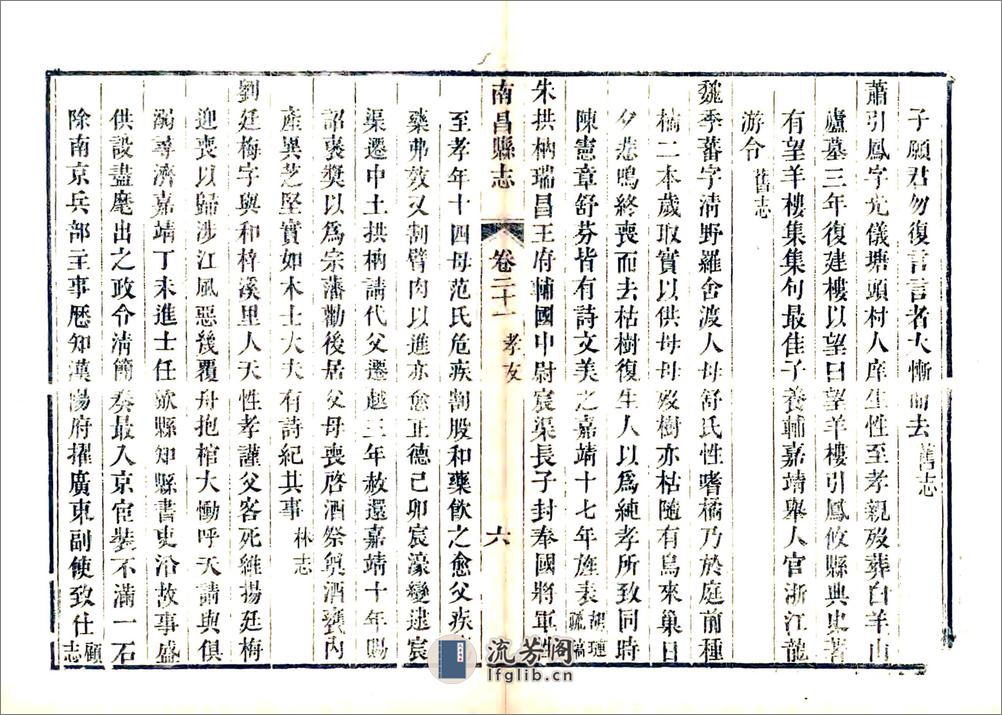 子願君勿復言言者大慚而去舊志
蕭引鳳字允儀塘頭村人庠生性至孝親歿葬白羊山
廬墓三年復建樓以望曰望羊樓引鳳攸縣典史著
有望羊樓集集句最佳子養輔嘉靖舉人官浙江龍
游令舊志
魏季蕃字清野羅舍渡人母舒氏性嗜橘乃於庭前種
橘二本歲取實以供母母歿樹亦枯隨有鳥來巢日
夕悲鳴終喪而去枯樹復生人以為純孝所致同時
陳憲章舒芬皆有詩文美之嘉靖十七年旌表胡璉疏稿
朱拱枘瑞昌王府輔國中尉宸渠長子封奉國將軍
南昌縣志 卷三十一 孝友 六
至孝年十四母范氏危疾割股和藥飲之愈父疾
藥弗效又割臂肉以進亦愈正德己卯宸濠變逮宸
渠遷中土拱枘請代父遷越三年赦還嘉靖十年賜
詔褒獎以為宗藩勸後居父母喪啓酒祭奠酒甕內
產異芝堅實如木士大夫有詩紀其事林志
劉廷梅字與和梓溪里人天性孝謹父客死維揚廷梅
迎喪以歸涉江風惡後覆舟抱棺大慟呼天請與俱
溺尋濟嘉靖丁未進士任歙縣知縣書吏沿故事盛
供設盡麾出之政令清簡奏最入京宦裝不滿一石
除南京兵部主事歷知漢陽府擢廣東副使致仕顧志
流芳阁
lfglib.cn